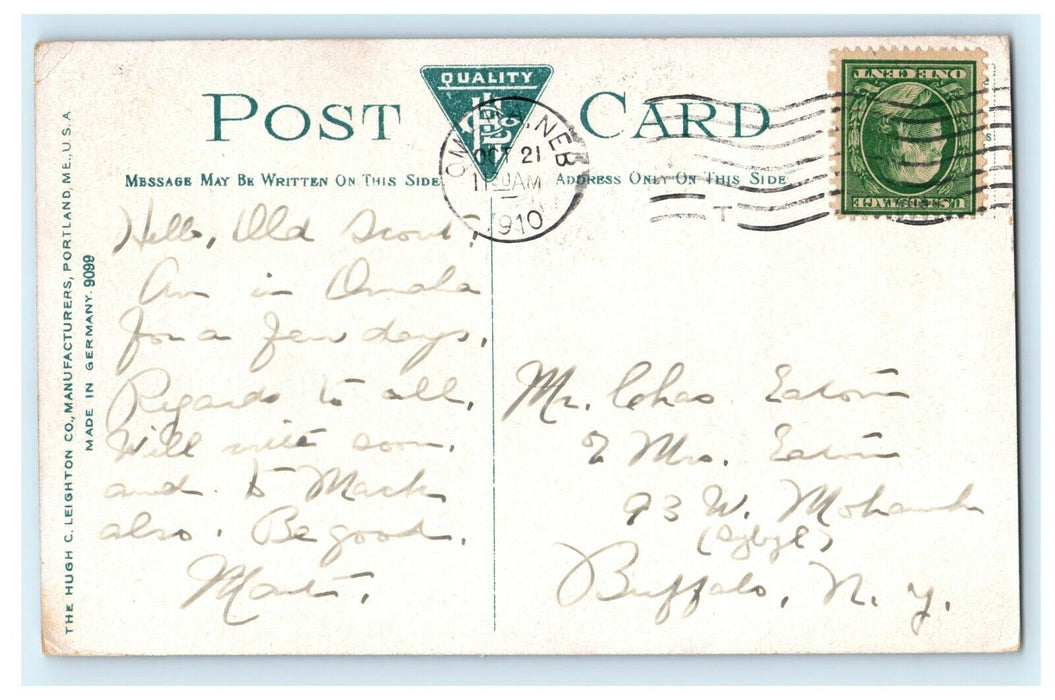 THE HUGH C. LEIGHTON CO., MANUFACTURERS, PORTLAND, ME., U.S.A
MADE IN GERMANY. 9099
POST CARD
QUALITY
MESSAGE MAY BE WRITTEN ON THIS SIDE
ADDRESS ONLY ON THIS SIDE
OMAHA, NEB
OCT 21
11 30 AM
1910
U.S. POSTAGE
ONE CENT
Hello, Old Scout,
Am in Omaha
for a few days.
Regards to all.
Will write soon.
and to Mack
also. Be good.
Mart.
Mr. Chas. Eaton
& Mrs. Eaton
93 W. Mohawk
Buffalo, N. Y.